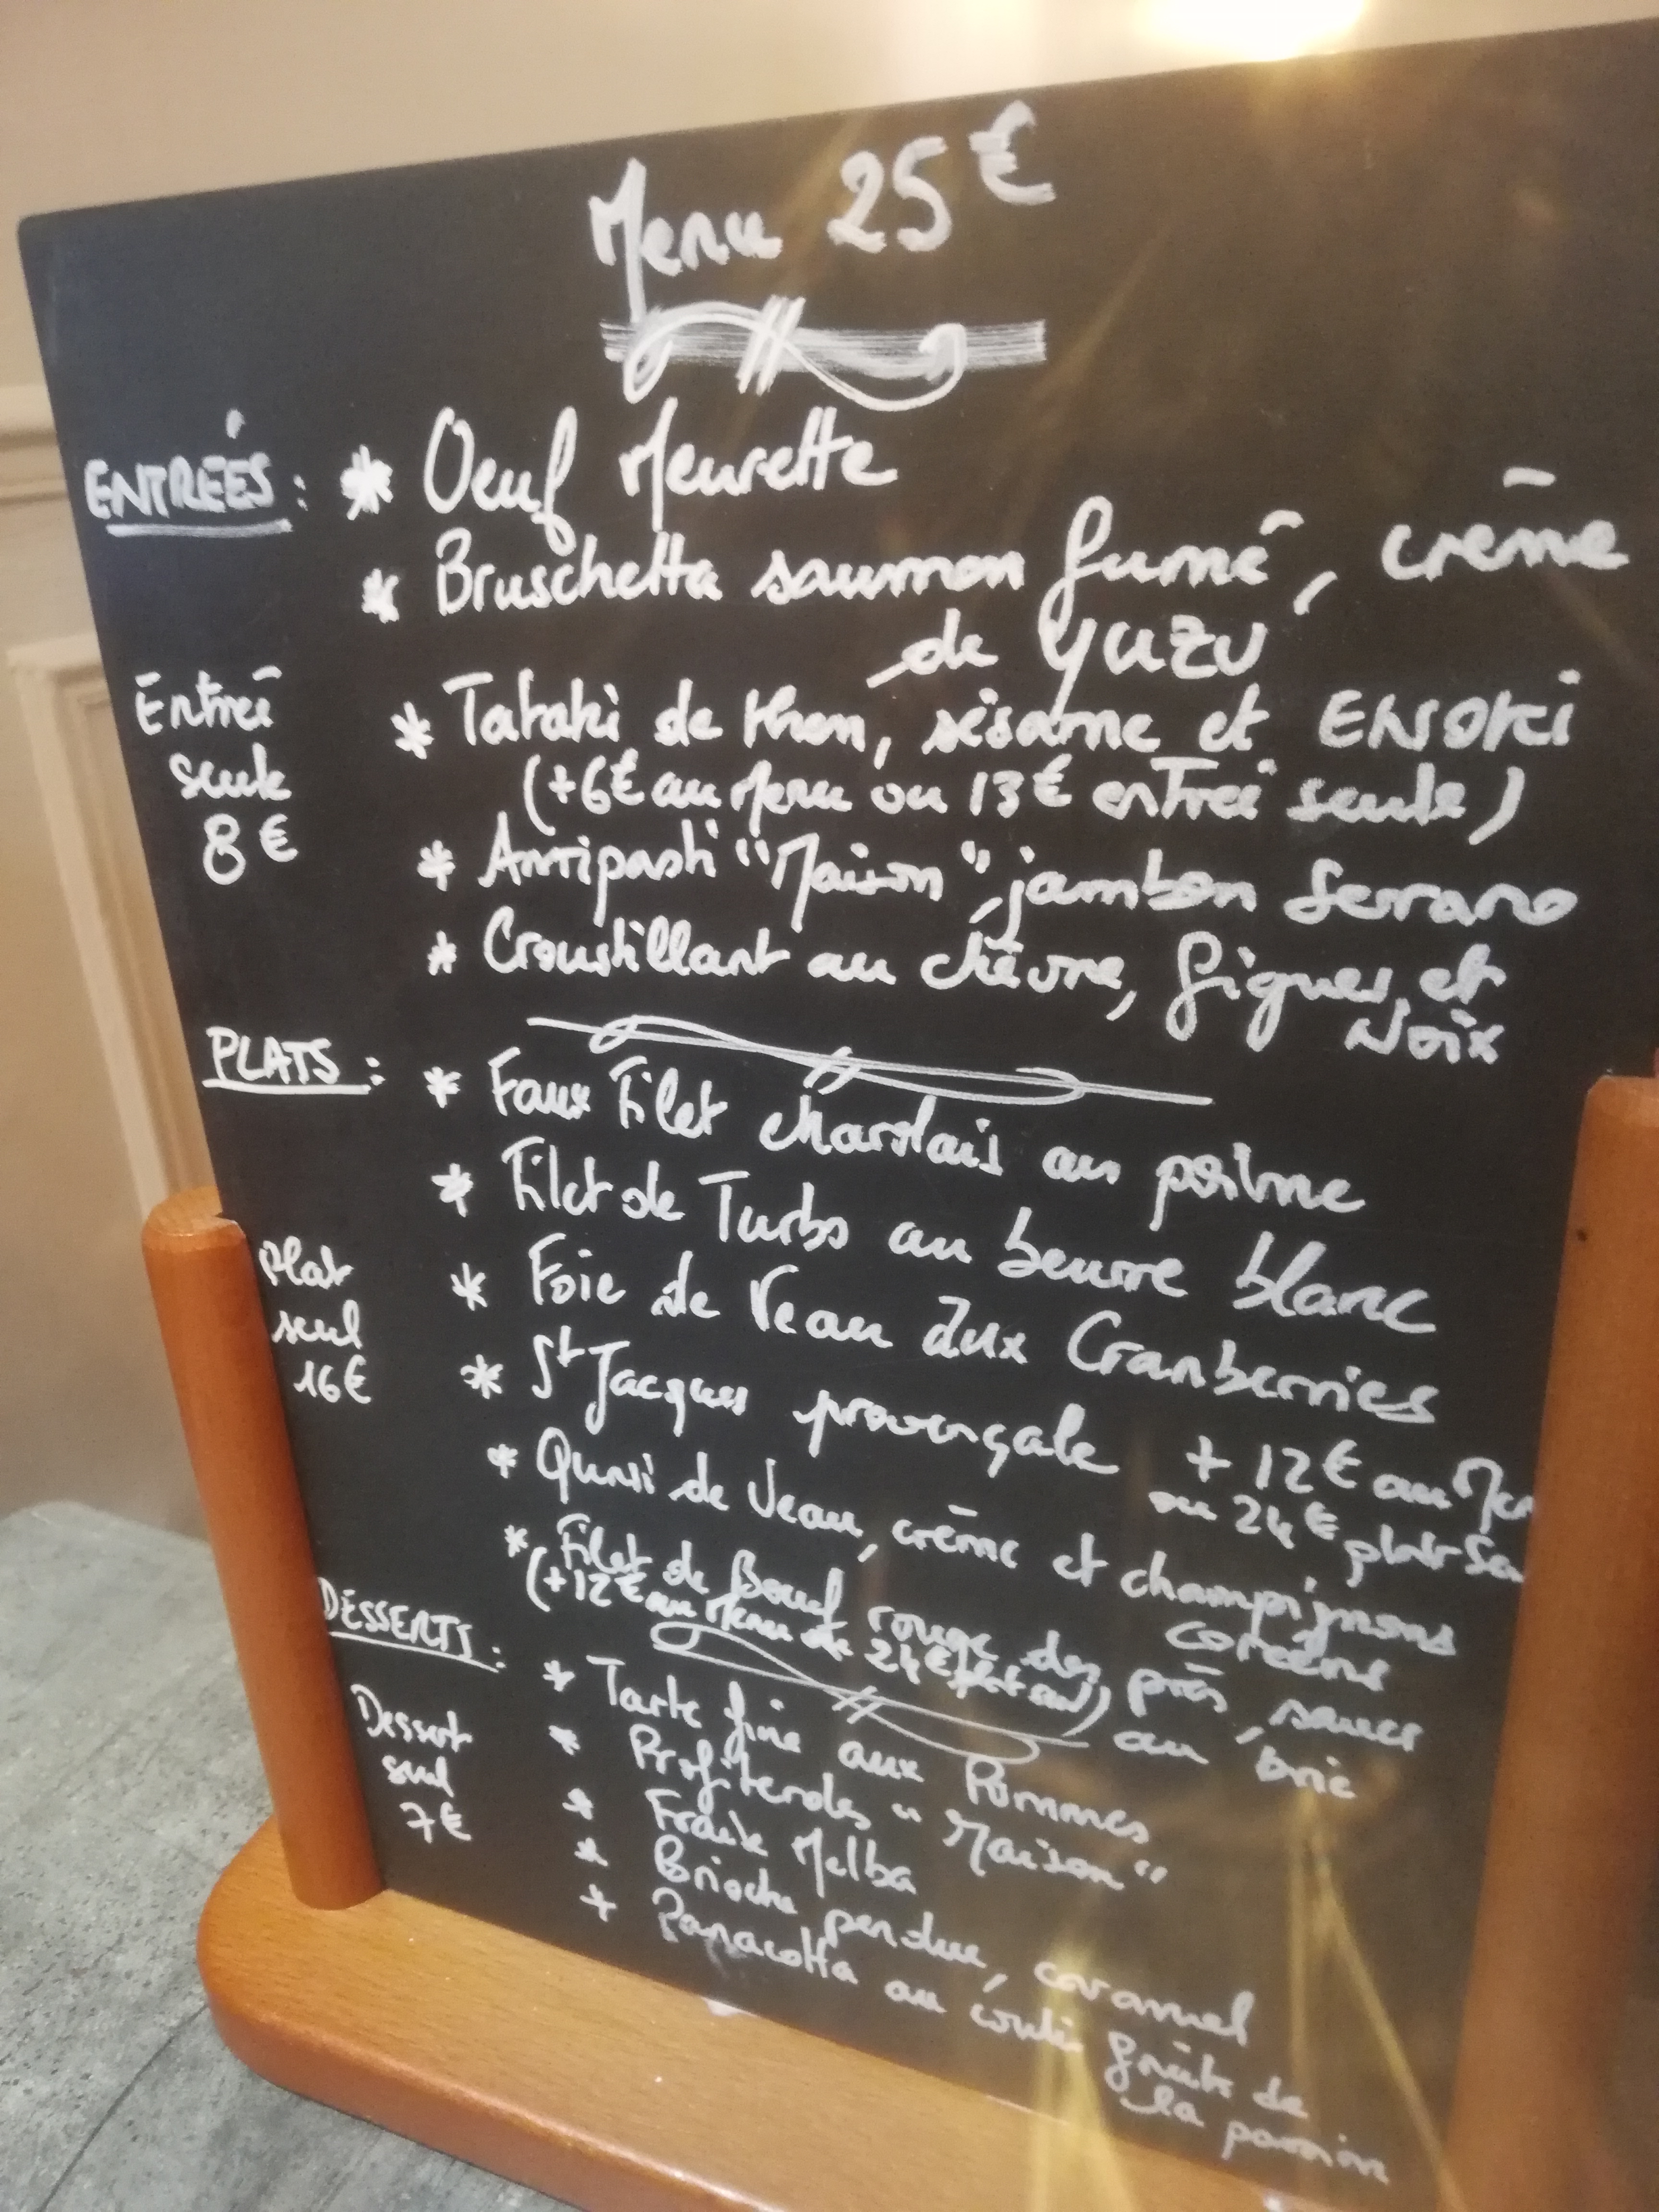 Menu 25€
ENTRÉES : * Oeuf Meurette
* Bruschetta saumon fumé, crème
de YUZU
Entrée
seule
8€
* Tataki de thon, sésame et ENOKI
(+6€ au Menu ou 13€ entrée seule)
* Antipasti "Maison", jambon Serrano
* Croustillant au chèvre, figues et
Noix
PLATS :
* Faux Filet charolais au poivre
* Filet de Turbo au beurre blanc
Plat
seul
16€
* Foie de Veau aux Cranberries
* St Jacques provençale + 12€ au Men
ou 24€ plat seu
* Quasi de Veau, crème et champignons
coréens
* Filet de Boeuf rouge des près, sauce
au brie
(+12€ au Menu ou 24€ plat seul)
DESSERTS :
Dessert
seul
7€
* Tarte fine aux Pommes
* Profiteroles "Maison"
* Fraise Melba
* Brioche perdue, caramel
* Panacotta au coulis fruits de
la passion